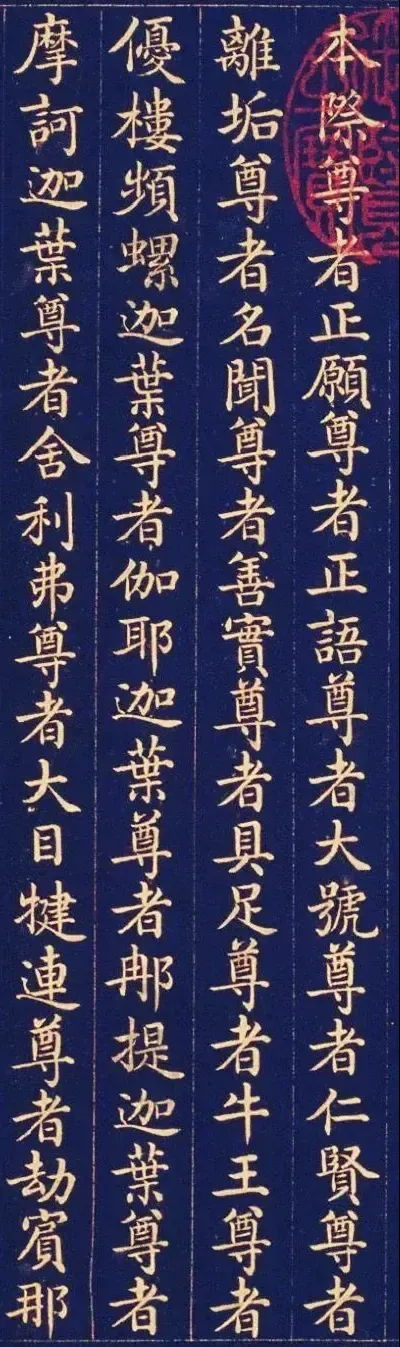 本際尊者正願尊者正語尊者大號尊者仁賢尊者
離垢尊者名聞尊者善實尊者具足尊者牛王尊者
優樓頻螺迦葉尊者伽耶迦葉尊者那提迦葉尊者
摩訶迦葉尊者舍利弗尊者大目犍連尊者劫賓那